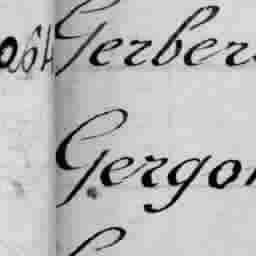 264 Gerber
Gergo